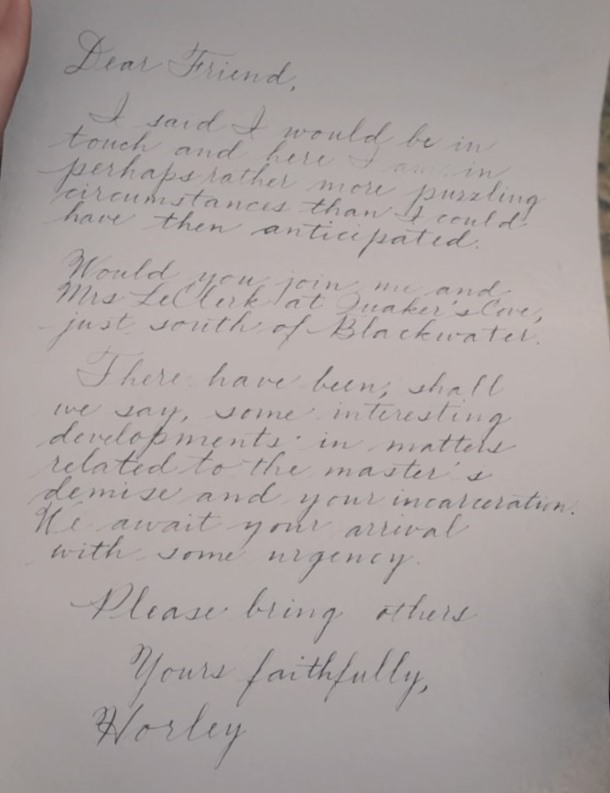 Dear Friend,
I said I would be in
touch and here I am in
perhaps rather more puzzling
circumstances than I could
have then anticipated.
Would you join me and
Mrs LeClerk at Quaker's Cove,
just south of Blackwater.
There have been, shall
we say, some interesting
developments in matters
related to the master's
demise and your incarceration.
We await your arrival
with some urgency.
Please bring others
Yours faithfully,
Horley